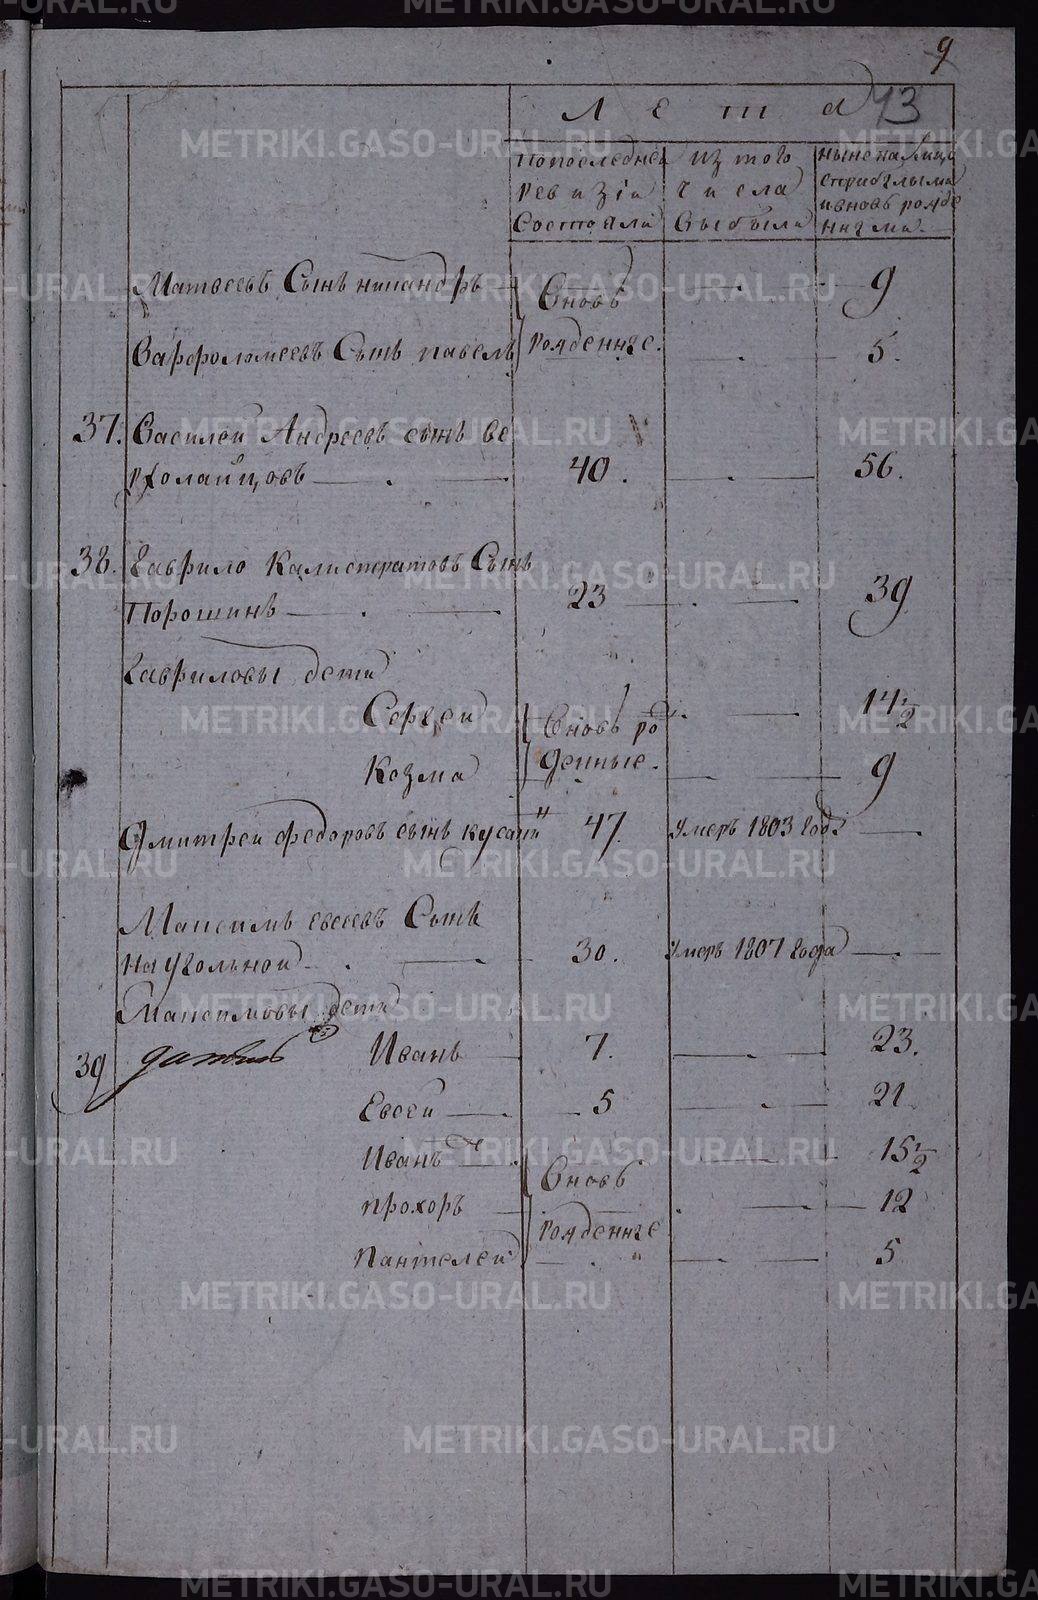 9
73
Лета
По последней ревизіи состояли
Из того числа выбыли
Ныне налицо с прибылыми и вновь рожденными
Матвеевъ Сынъ никандръ Вновь 9
Варфоломеевъ Сынъ павелъ рожденные. 5.
37. Василеи Андреевъ сынъ Ве
рхоланцовъ 40. 56.
38. Гаврило Калистратовъ Сынъ
Порошинъ 23 39
Гавриловы дети
Сергеи Вновь ро 14 1/2
Козма жденные. 9
Дмитреи федоровъ сынъ 47. Умеръ 1803 года
Максимъ евсеевъ Сынъ
Наугольной 30. Умеръ 1807 года
Максимовы дети
39 Иванъ 7. 23.
Евсей 5 21
Иванъ Вновь 15 1/2
прохоръ рожденные 12
Пантелей 5
METRIKI.GASO-URAL.RU